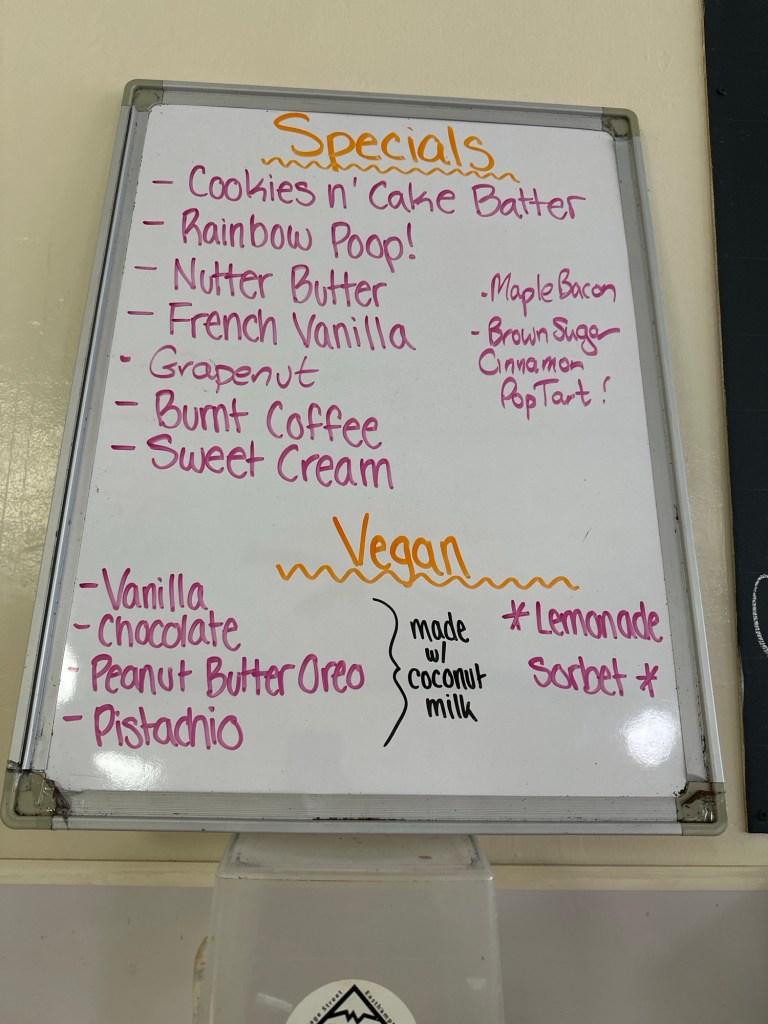 Specials
- Cookies n' Cake Batter
- Rainbow Poop!
- Nutter Butter
- French Vanilla
- Grapenut
- Burnt Coffee
- Sweet Cream
- Maple Bacon
- Brown Sugar
Cinnamon
PopTart!
Vegan
- Vanilla
- Chocolate
- Peanut Butter Oreo
- Pistachio
made
w/
coconut
milk
* Lemonade
Sorbet *
Street